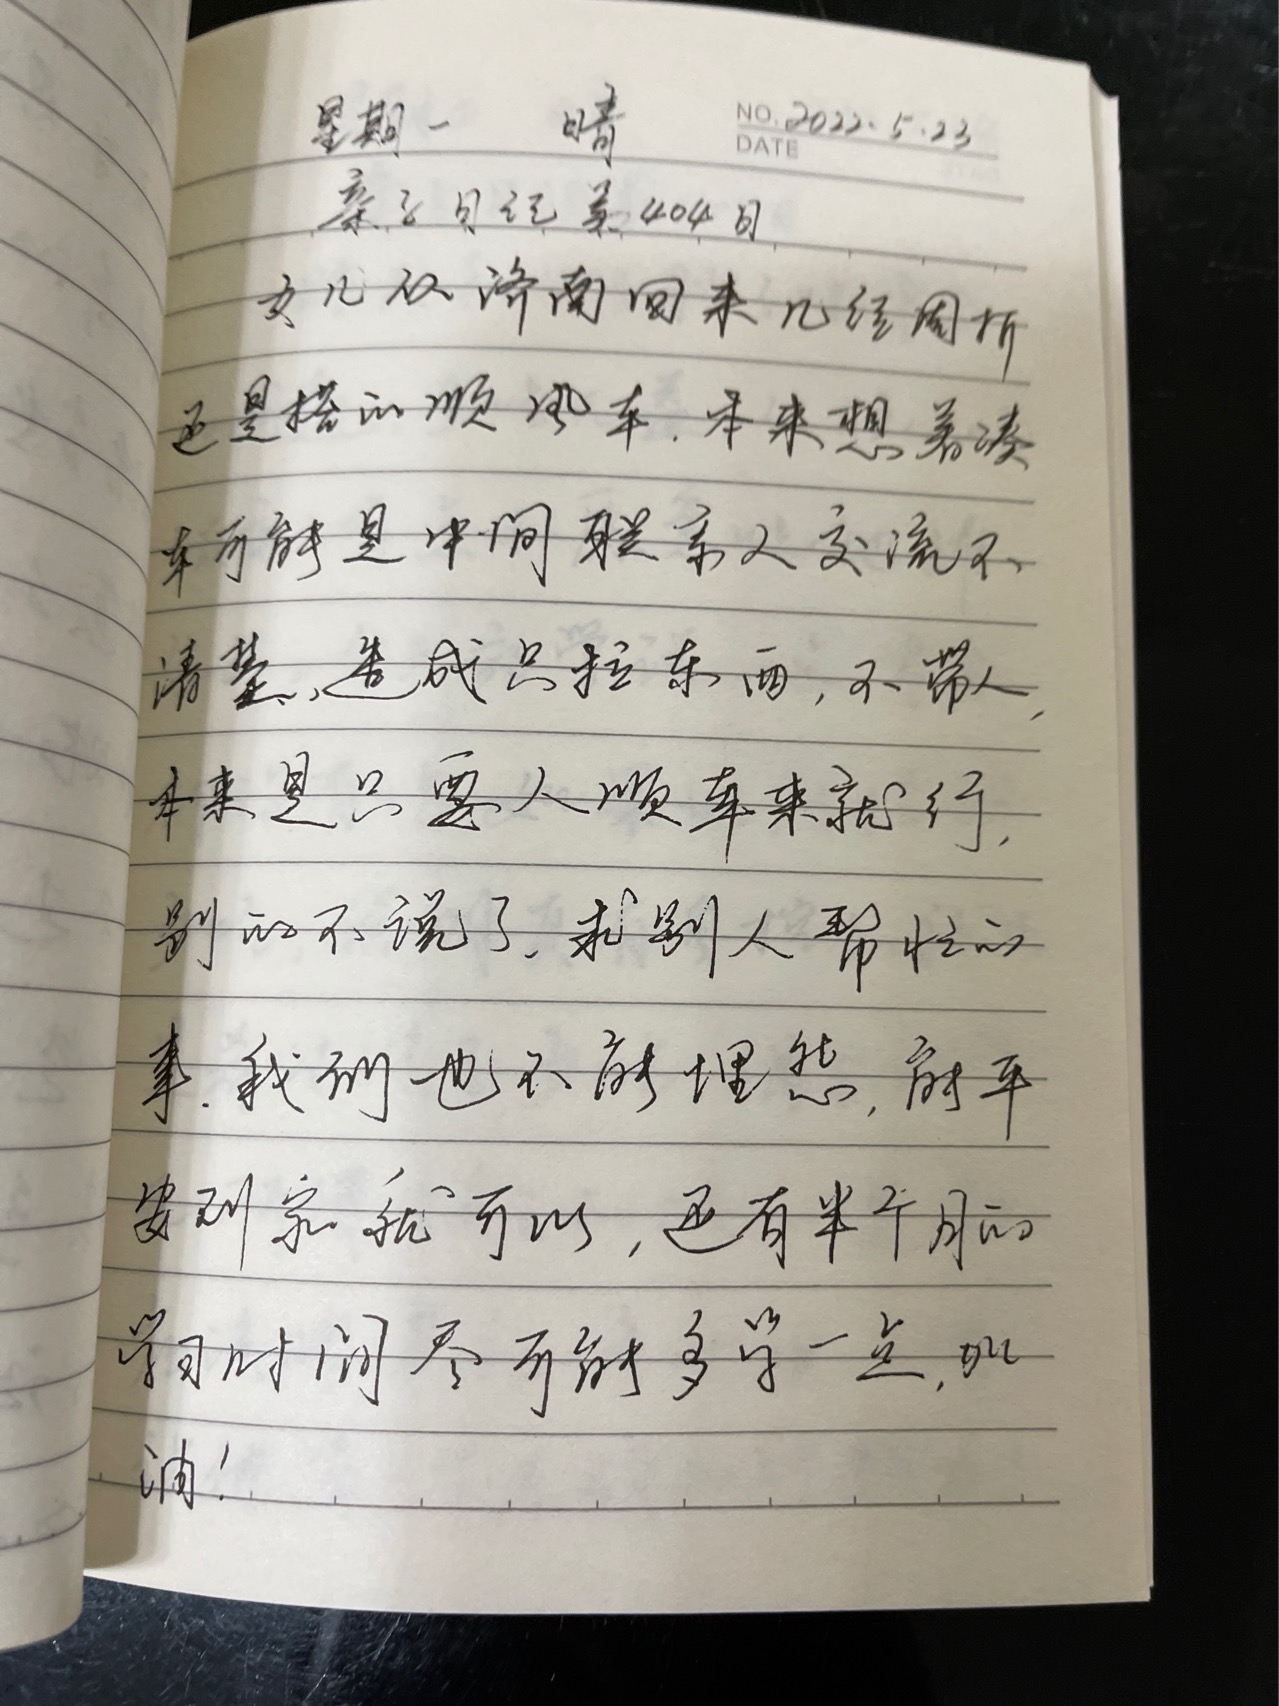 星期一 晴 NO. 2022.5.23
DATE
亲子日记第404日
女儿从济南回来几经周折
还是搭的顺风车.本来想着凑
车可能是中间联系人交流不
清楚、造成只拉东西,不带人,
本来是只要人顺车来就行,
别的不说了.求别人帮忙的
事.我们也不能埋怨,能平
安到家就可以,还有半个月的
学习时间尽可能多学一点,加
油!